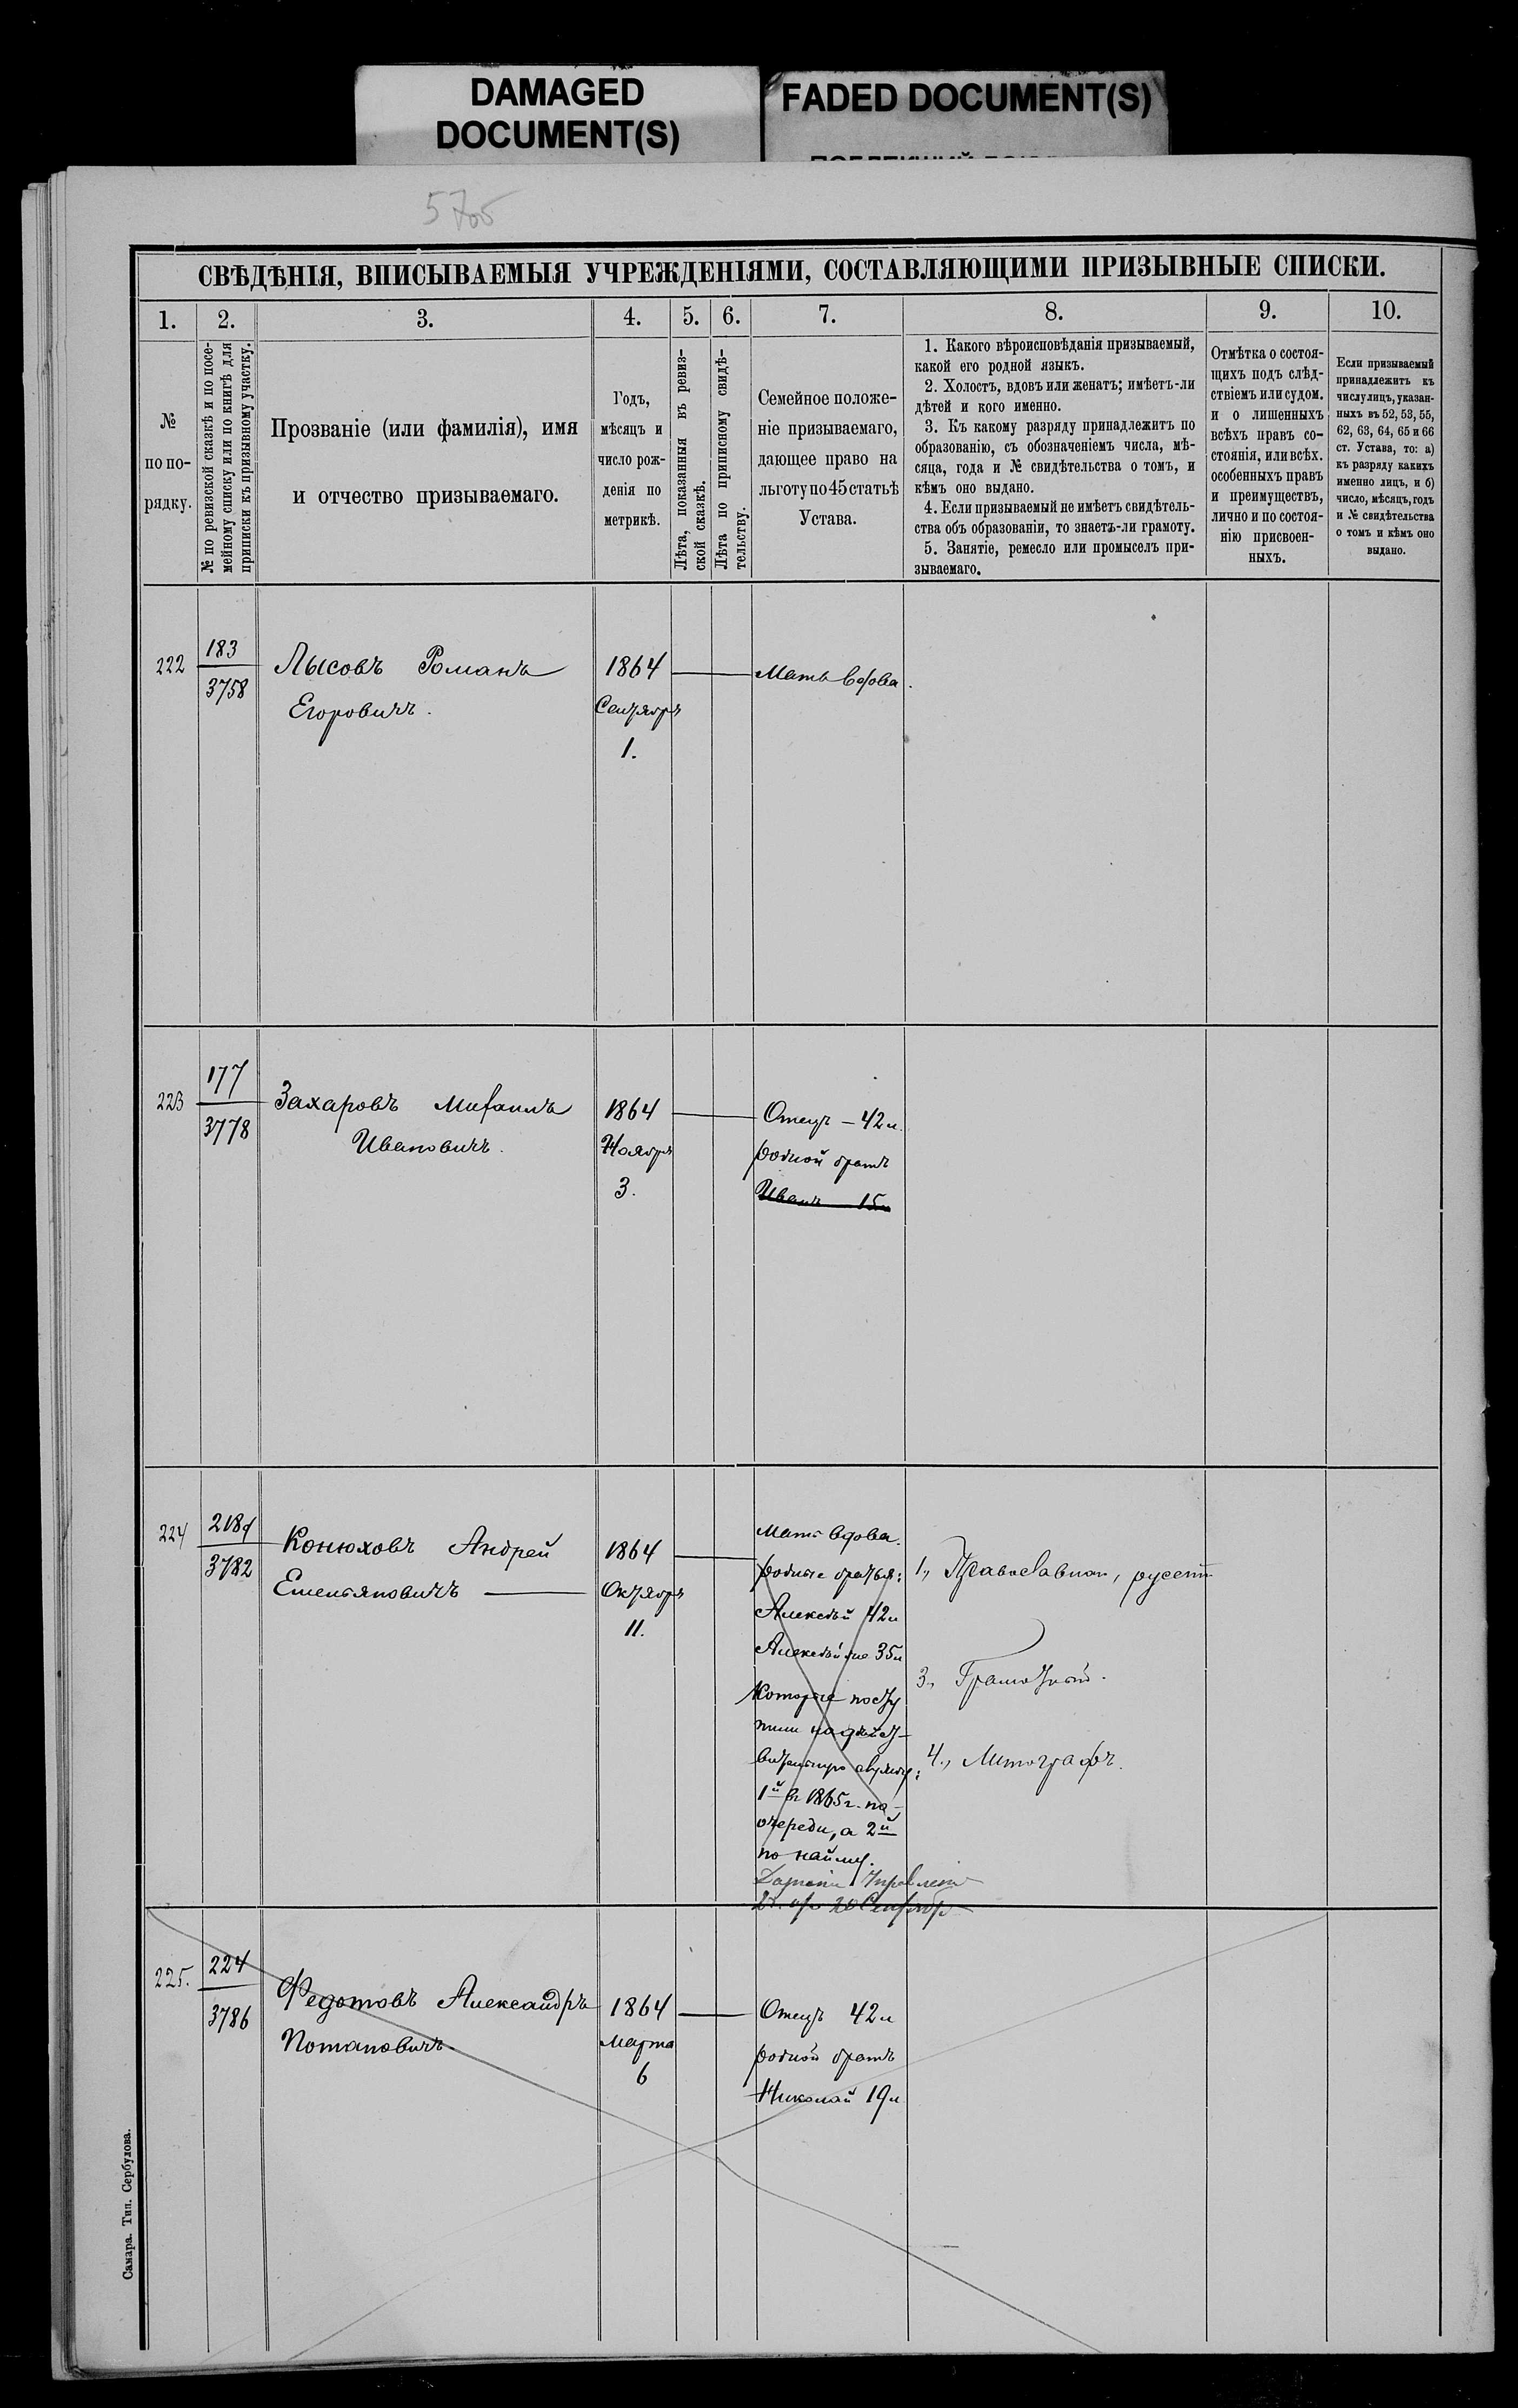 DAMAGED
DOCUMENT(S)
FADED DOCUMENT(S)
СВѢДѢНІЯ, ВПИСЫВАЕМЫЯ УЧРЕЖДЕНІЯМИ, СОСТАВЛЯЮЩИМИ ПРИЗЫВНЫЕ СПИСКИ.
1.
2.
3.
4.
5.
6.
7.
8.
9.
10.
№
по по-
рядку.
№ по ревизской сказкѣ и по посе-
мейному списку или по книгѣ для
приписки къ призывному участку.
Прозваніе (или фамилія), имя
и отчество призываемаго.
Годъ,
мѣсяцъ и
число рож-
денія по
метрикѣ.
Лѣта, показанныя въ ревиз-
ской сказкѣ.
Лѣта по приписному свидѣ-
тельству.
Семейное положе-
ніе призываемаго,
дающее право на
льготу по 45 статьѣ
Устава.
1. Какого вѣроисповѣданія призываемый,
какой его родной языкъ.
2. Холостъ, вдовъ или женатъ; имѣетъ-ли
дѣтей и кого именно.
3. Къ какому разряду принадлежитъ по
образованію, съ обозначеніемъ числа, мѣ-
сяца, года и № свидѣтельства о томъ, и
кѣмъ оно выдано.
4. Если призываемый не имѣетъ свидѣтель-
ства объ образованіи, то знаетъ-ли грамоту.
5. Занятіе, ремесло или промыселъ при-
зываемаго.
Отмѣтка о состоя-
щихъ подъ слѣд-
ствіемъ или судомъ.
и о лишенныхъ
всѣхъ правъ со-
стоянія, или всѣх.
особенныхъ правъ
и преимуществъ,
лично и по состоя-
нію присвоен-
ныхъ.
Если призываемый
принадлежитъ къ
числу лицъ, указан-
ныхъ въ 52, 53, 55,
62, 63, 64, 65 и 66
ст. Устава, то: а)
къ разряду какихъ
именно лицъ, и б)
число, мѣсяцъ, годъ
и № свидѣтельства
о томъ и кѣмъ оно
выдано.
222
183
3758
Лысовъ Романъ
Егоровичъ.
1864
Сентября
1.
Мать вдова.
223
177
3778
Захаровъ Михаилъ
Ивановичъ.
1864
Ноября
3.
Отецъ – 42 л.
родной братъ
Иванъ 15 л
224
218
3782
Конюховъ Андрей
Емельяновичъ
1864
Октября
11.
Мать вдова.
родные братья:
Алексѣй 42 л
Алексѣй же 35 л
которые посту
пили на дѣйст-
вительную службу:
1й въ 1865 г. по
очереди, а 2й
по найму.
20 Сентября
1., Православнаго, русскій
3., Грамотный.
4., Литографъ.
225.
224
3786
Федотовъ Александръ
Потаповичъ
1864
Марта
6
Отецъ 42 л
родной братъ
Николай 19 л
Самара. Тип. Сербулова.